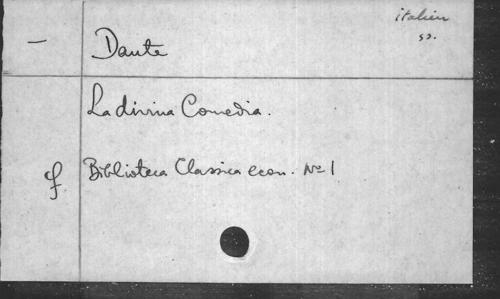 italien
ss.
— Dante
La divina Comedia.
cf Biblioteca Classica econ. No 1